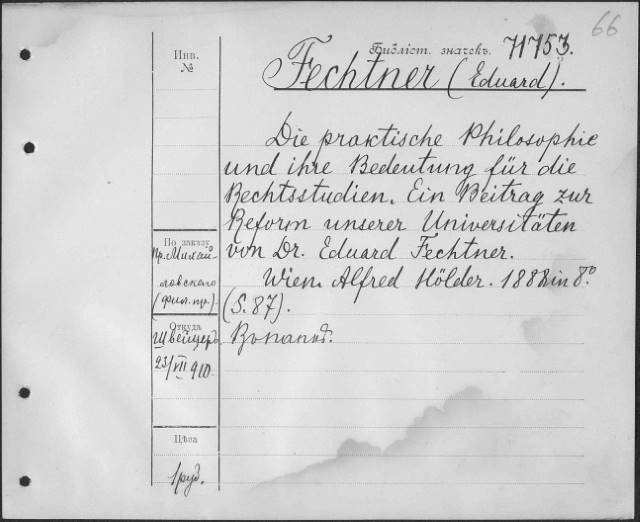 66
Библіот. значекъ. 71753.
Инв.
№
Fechtner (Eduard).
Die praktische Philosophie
und ihre Bedeutung für die
Rechtsstudien. Ein Beitrag zur
Reform unserer Universitäten
von Dr. Eduard Fechtner.
Wien. Alfred Hölder. 1888 in 8°
(S. 87).
По заказу
пр. Михай-
ловскаго
(фил. пр.)
Откуда
Швейцер.
23/VII 910.
Цѣна
1 руб.